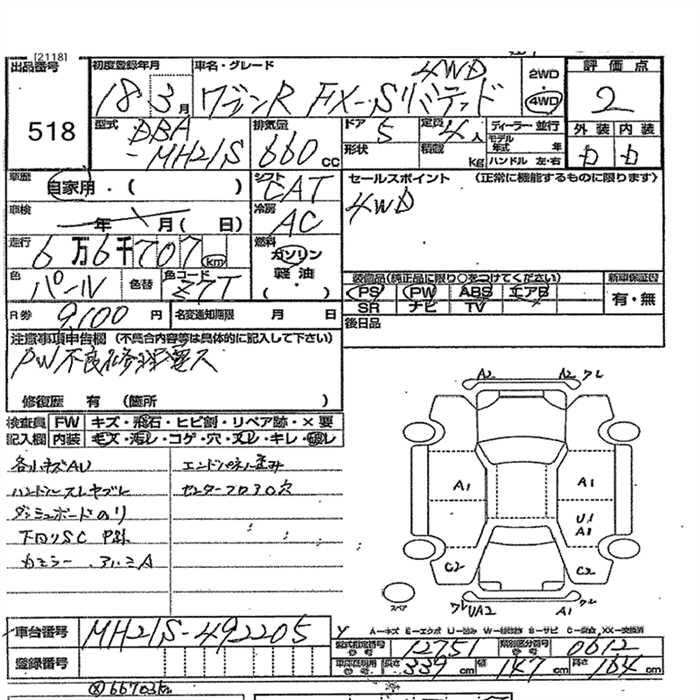 [2118]
出品番号
518
初度登録年月
18 3月
車名・グレード
ワゴンR FX-Sリミテッド
4WD
2WD
4WD
評価点
2
外装 内装
D D
型式
DBA
-MH21S
排気量
660cc
ドア
5
形状
定員
4人
積載
kg
ディーラー・並行
モデル年式 年
ハンドル 左・右
車歴
自家用・( )
シフト
CAT
セールスポイント (正常に機能するものに限ります)
4WD
車検
年 月( 日)
冷房
AC
走行
6万6千707km
燃料
ガソリン
軽油
・( )
色
パール
色替
色コード
Z7T
装備品(純正品に限り○をつけてください)
PS PW ABS エアB
SR ナビ TV
新車保証書
有・無
R券
9,100円
名変通知期限 月 日
後日品
注意事項申告欄 (不具合内容等は具体的に記入して下さい)
PW不良
修復歴 有 (箇所 )
検査員
記入欄
FW キズ・飛石・ヒビ割・リペア跡・×要
内装 キズ・汚レ・コゲ・穴・スレ・キレ・破レ
各小キズAU
エンドパネル歪み
ハンドルスレヤブレ
センターフロアO穴
ダッシュボードのり
下回りSC P跡
カモラー アルミA
A2 A2 ワレ
A1 A1
U1
A1
C2 C2
スペア
ワレ UA2 A1 ワレ
車台番号
MH21S-492205
A-キズ E-エクボ U-凹み W-補修跡 S-サビ C-腐食 XX-交換済
型式指定番号 12751
類別区分番号 0612
登録番号
長さ 339cm 幅 147cm 高さ 164cm
66703km